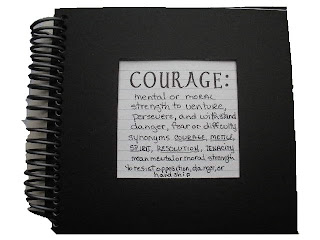 COURAGE:
mental or MORAL
strength to venture,
persevere, and withstand
danger, fear or difficulty
synonyms COURAGE, METTLE,
SPIRIT, RESOLUTION, TENACITY
mean mental or moral strength
to resist opposition, danger, or
hardship